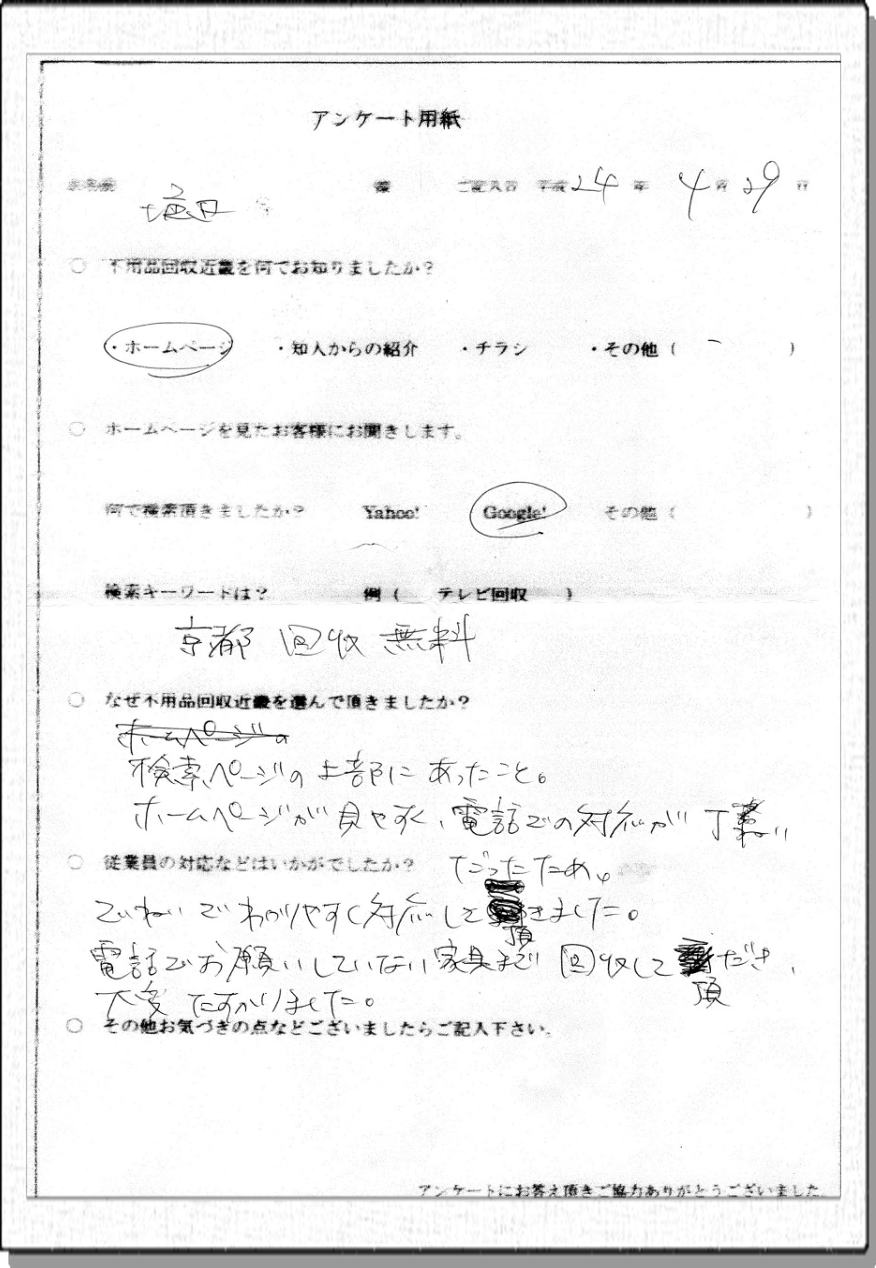 アンケート用紙
お名前 様 ご記入日 平成24年4月29日
○ 不用品回収近畿を何でお知りましたか？
・ホームページ ・知人からの紹介 ・チラシ ・その他（ ）
○ ホームページを見たお客様にお聞きします。
何で検索頂きましたか？ Yahoo! Google! その他（ ）
検索キーワードは？ 例（ テレビ回収 ）
京都 回収 無料
○ なぜ不用品回収近畿を選んで頂きましたか？
ホームページの
検索ページの上部にあったこと。
ホームページが見やすく、電話での対応が丁ねい
だったため。
○ 従業員の対応などはいかがでしたか？
ていねいでわかりやすく対応して頂きました。
電話でお願いしていない家具まで回収して頂だき、
大変たすかりました。
○ その他お気づきの点などございましたらご記入下さい。
アンケートにお答え頂きご協力ありがとうございました。